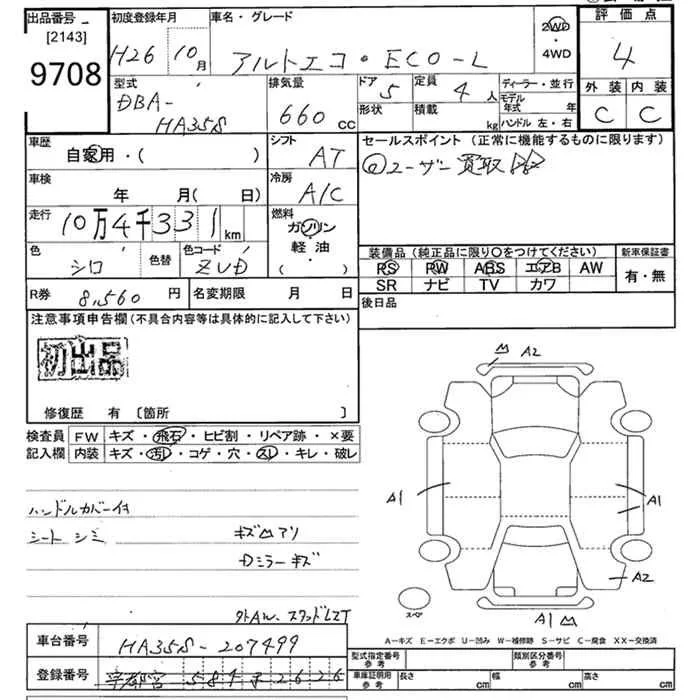 出品番号 初度登録年月 車名・グレード 評価点
[2143] H26 10月 アルトエコ・ECO-L 2WD・4WD 4
9708
型式 排気量 ドア 定員 ディーラー・並行 外装 内装
DBA-HA35S 660cc 5 4人 モデル年式 年 C C
形状 積載 kg ハンドル 左・右
車歴 シフト セールスポイント (正常に機能するものに限ります)
自家用・( ) AT ユーザー買取
車検 冷房
年 月(日) A/C
走行 燃料
10万4千331km ガソリン
軽油
・( )
色 色替 色コード
シロ ZVD
装備品(純正品に限り○をつけてください) 新車保証書
PS PW ABS エアB AW 有・無
SR ナビ TV カワ
R券 8,560円 名変期限 月 日 後日品
注意事項申告欄(不具合内容等は具体的に記入して下さい)
初出品
修復歴 有 [箇所 ]
検査員 FW キズ・飛石・ヒビ割・リペア跡・×要
記入欄 内装 キズ・汚レ・コゲ・穴・スレ・キレ・破レ
ハンドルカバー付
シート シミ キズ凹アリ
Dミラーキズ
外AW.スタッドレス
A2
A1 A1
A2
スペア A1
A-キズ E-エクボ U-凹み W-補修跡 S-サビ C-腐食 XX-交換済
車台番号 HA35S-207499
登録番号 宇都宮 584 2626
型式指定番号 参考 類別区分番号 参考
車庫証明用 参考 長さ cm 幅 cm 高さ cm